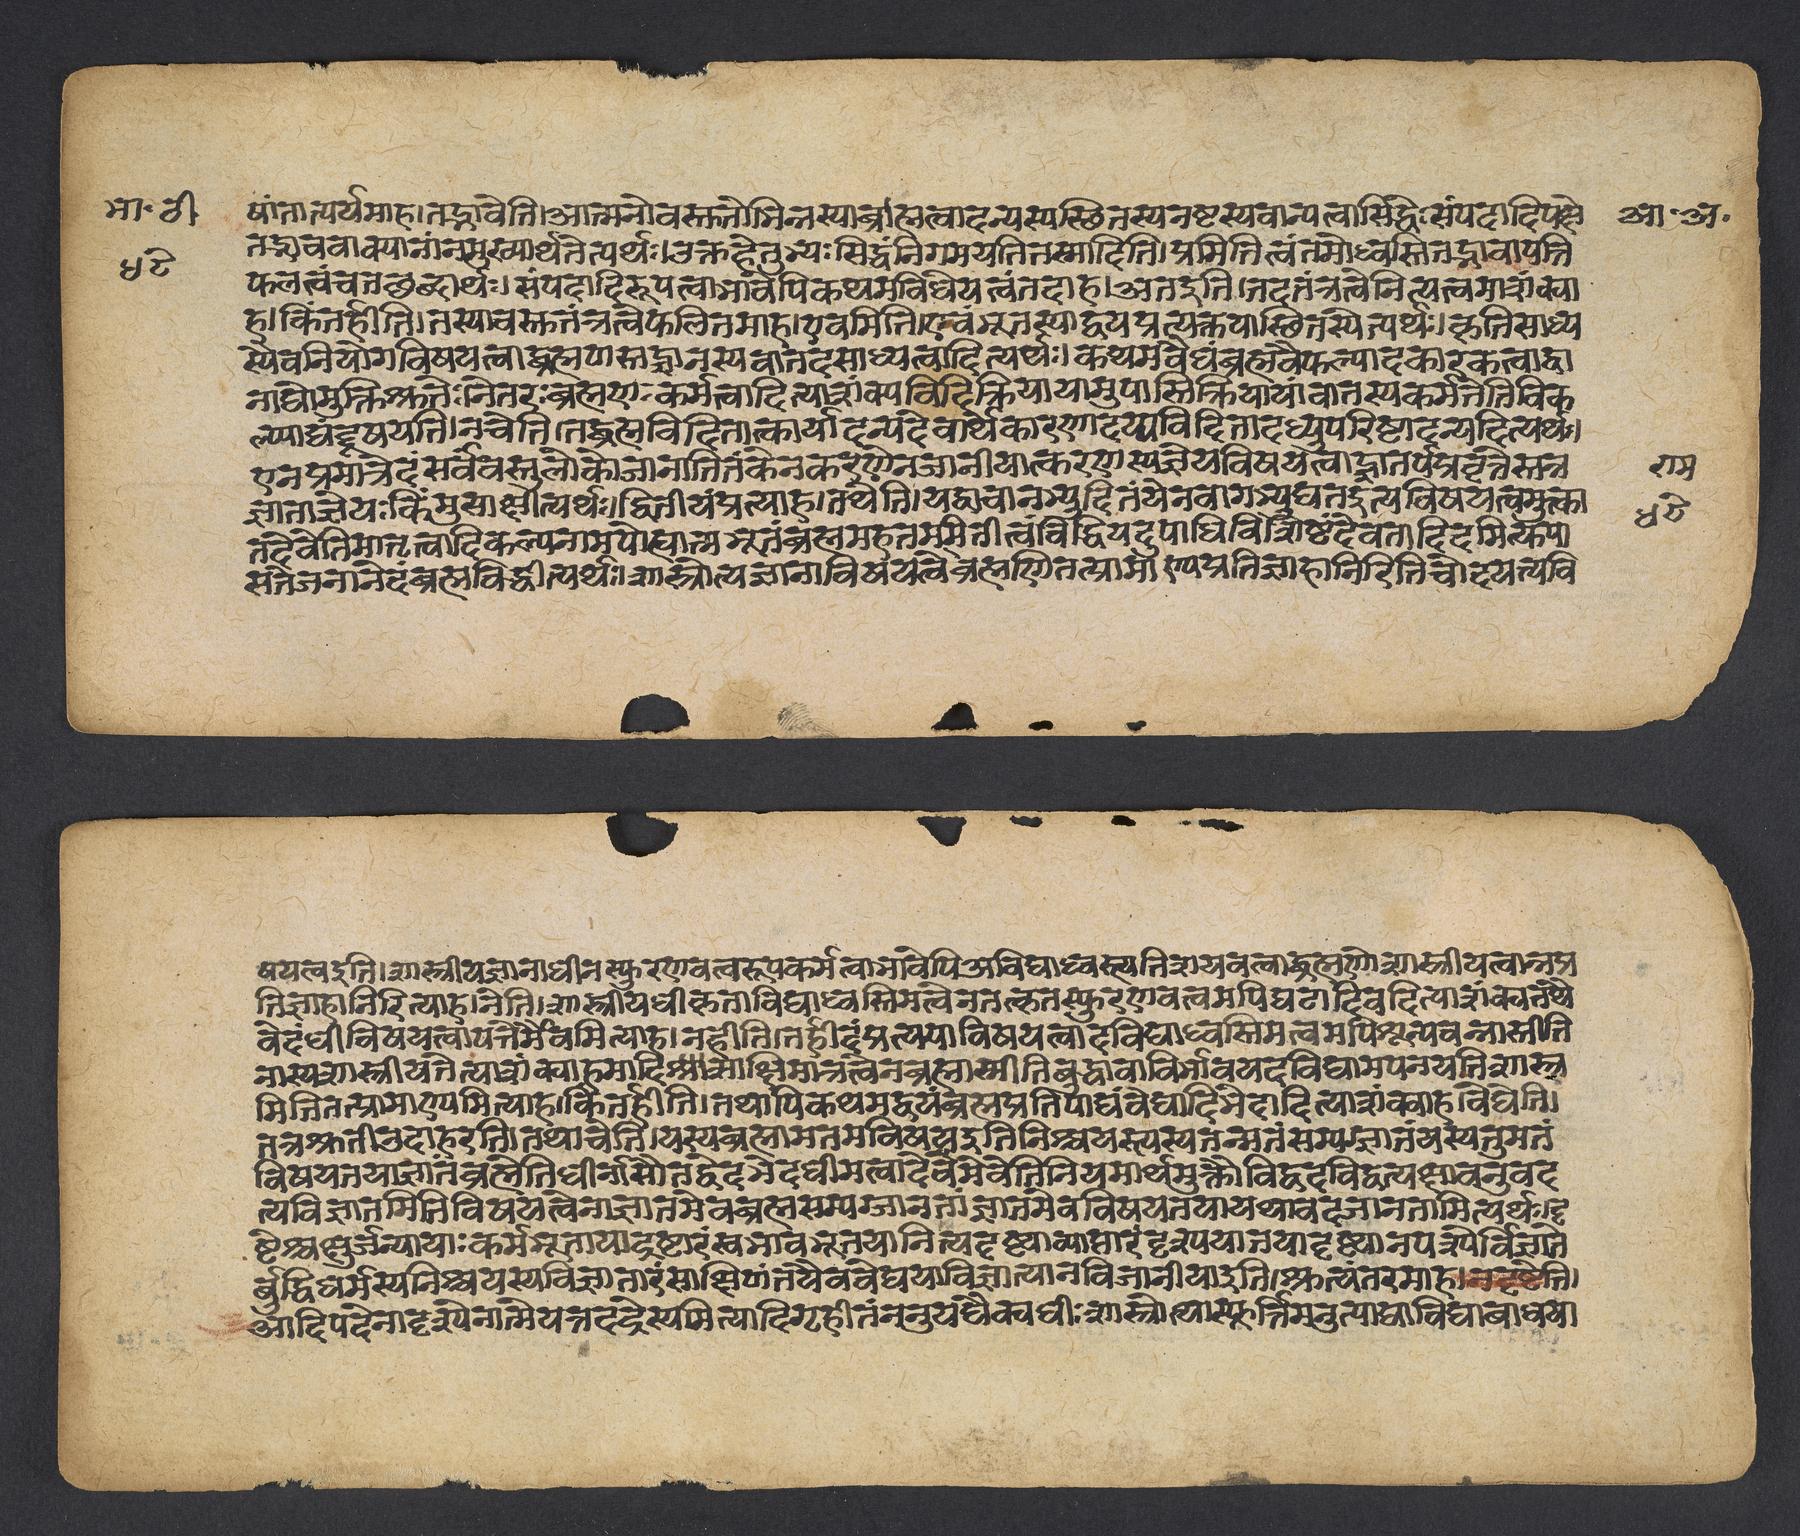 भा॰ टी
आ॰ अ॰
५८
षां तात्पर्यमाह। तद्भावेति। आत्मनो वस्तुतो भिन्नस्याब्रह्मत्वादन्यस्य स्थितस्य नष्टस्य वान्यत्वासिद्धिः संपदादिपक्षे
तद्भाववाक्यानां न मुख्यार्थतेत्यर्थः। उक्तहेतुभ्यः सिद्धं निगमयति तस्मादिति। प्रमितित्वं तमोध्वस्तिस्तद्भावापत्ति
फलत्वं च तच्छब्दार्थः। संपदादिरूपत्वाभावेपि कथमविधेयत्वं तदाह। अत इति। तदतंत्रत्वे नित्यत्वमाशंक्या
ह। किं तर्हीति। तस्या वस्तुतंत्रत्वे फलितमाह। एवमिति। एवंभूतस्याद्वयप्रत्यक्तया स्थितस्येत्यर्थः। कृतिसाध्य
स्यैव नियोगविषयत्वाद्ब्रह्मणस्तज्ज्ञानस्य वा तदसाध्यत्वादित्यर्थः। कथमवैधं ब्रह्म वैफल्यादकारकत्वाद्वा
नाद्यो मुक्तिश्रुतेः नेतरः ब्रह्मणः कर्मत्वादित्याशंक्य विदिक्रियायामुपास्तिक्रियायां वा तस्य कर्मतेति विक
ल्प्याद्यं दूषयति। न चेति। तद्ब्रह्म विदितात्कार्यादन्यदेवार्थे कारणादप्यविदितादध्युपरिष्टादन्यदित्यर्थः।
एन प्रमात्रेदं सर्वं वस्तु लोको जानाति तं केन करणेन जानीयात्करणस्य ज्ञेयविषयत्वाद्ज्ञातर्यप्रवृत्तेस्तन्न
ज्ञाता ज्ञेयः किंतु साक्षीत्यर्थः। द्वितीयं प्रत्याह। तथेति। यद्वाचानभ्युदितं येन वागभ्युद्यत इत्यविषयत्वमुक्त्वा
राम
५८
तदेवेति मातृत्वादिकल्पनामपोह्यात्मभूतं ब्रह्म महत्तममिति त्वं विद्धि यदुपाधिविशिष्टं देवतादिदमित्युपा
सते जना नेदं ब्रह्म विद्धीत्यर्थः। शास्त्रोत्थज्ञानाविषयत्वे ब्रह्मणि तत्प्रामाण्यप्रतिज्ञाहानिरिति चोदयत्यवि
षयत्व इति। शास्त्रीयज्ञानाधीनस्फुरणवत्वरूपकर्मत्वाभावेपि अविद्याध्वस्त्यतिशयवत्वाद्ब्रह्मणो शास्त्रीयत्वान्न प्र
तिज्ञाहानिरित्याह। नेति। शास्त्रीयधीकृताविद्याध्वस्तिमत्वे न तत्कृतस्फुरणवत्वमपि घटादिवदित्याशंक्य तथै
वेदंधीविषयत्वापत्तेर्मैवमित्याह। न हीति। तर्हीदं प्रत्ययाविषयत्वादविद्याध्वस्तिमत्वमपि शून्यवन्नास्तीति
नास्य शास्त्रीयतेत्याशंक्याहमादिसाक्षिमात्रत्वेन ब्रह्मास्मीति बुद्धावाविर्भावयदविद्यामपनयति शास्त्र
मिति तत्प्रामाण्यमित्याह। किं तर्हीति। तथापि कथमद्वयं ब्रह्म प्रतिपाद्यं वेद्यादिभेदादित्याशंक्याह वेद्येति।
तत्र श्रुतीउदाहरति। तथा चेति। यस्य ब्रह्मामतमविषय इति निश्चयस्तस्य तन्मतं सम्यग्ज्ञातं यस्य तु मतं
विषयतया ज्ञातं ब्रह्मेति धीर्नासौ तद्वेद भेदधीमत्वादेवमेवेति नियमार्थमुक्तौ विद्वदविद्वत्पक्षावनुवद
त्यविज्ञातमिति विषयत्वेनाज्ञातमेव ब्रह्म सम्यग्जानतां ज्ञातमेव विषयतया यथावदजानतामित्यर्थः। दृ
ष्टेश्चक्षुर्जन्यायाः कर्मभूताया द्रष्टारं स्वभावभूतया नित्यदृष्ट्या व्याप्तारं दृश्यया तया दृष्ट्या न पश्येर्विज्ञाते
र्बुद्धिधर्मस्य निश्चयस्य विज्ञातारं साक्षिणं तयैव वेद्यया विज्ञात्या न विजानीया इति। श्रुत्यंतरमाह। न दृष्टेति।
आदिपदेनादृश्येनात्मे यत्तदद्रेस्यमित्यादि गृहीतं ननु यद्यैक्यधीः शास्त्रोत्था स्फूर्त्तिमनुत्पाद्याविद्याबाधया